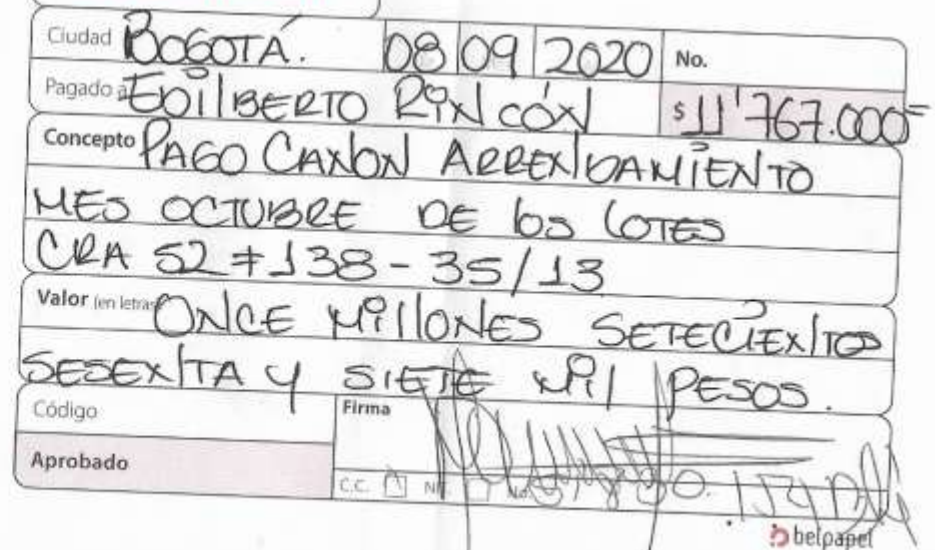 Ciudad BOGOTÁ. 08 09 2020 No.
Pagado a EDILBERTO RINCÓN $ 11'767.000=
Concepto PAGO CANON ARRENDAMIENTO
MES OCTUBRE DE LOS LOTES
CRA 52 # 138 - 35/13
Valor (en letras) ONCE MILLONES SETECIENTOS
SESENTA Y SIETE MIL PESOS.
Código Firma
Aprobado
C.C. No.
belpapel